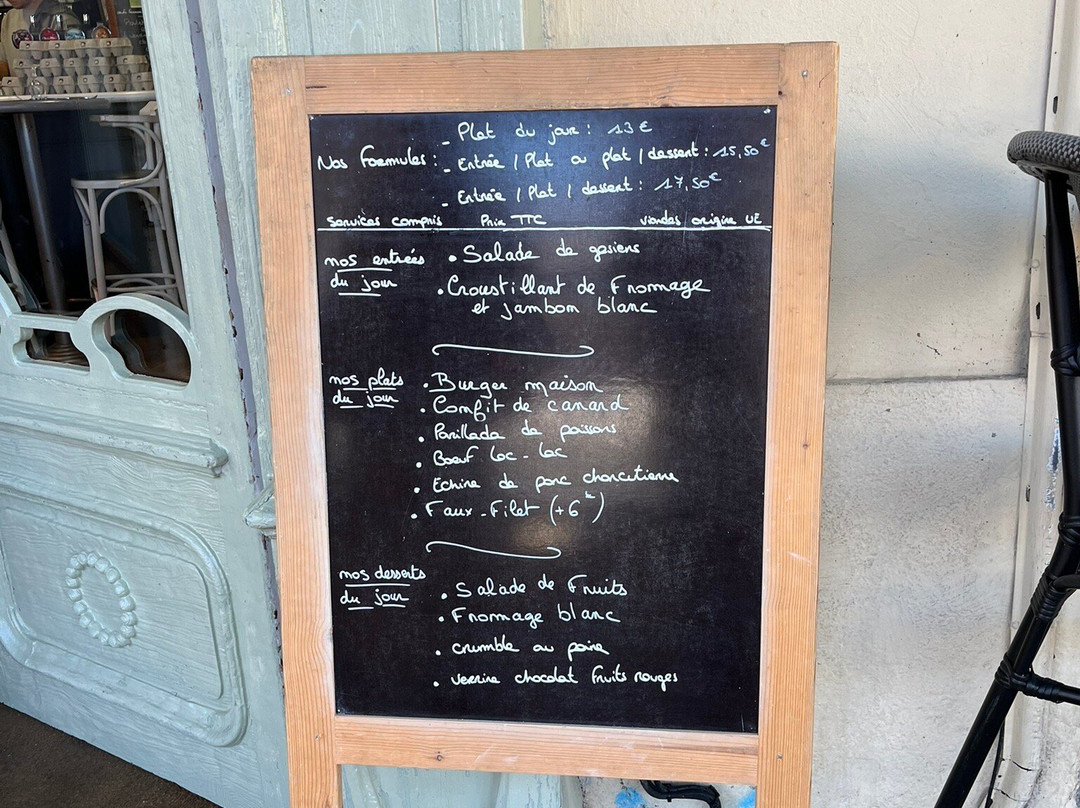 - Plat du jour : 13€
Nos Formules : - Entrée / Plat ou plat / dessert : 15,50€
- Entrée / Plat / dessert : 17,50€
services compris Prix TTC viandes origine UE
nos entrées du jour
• Salade de gesiens
• Croustillant de Fromage
et jambom blanc
nos plats du jour
• Burger maison
• Comfit de canard
• Parillada de poissons
• Boeuf loc-lac
• Echine de porc charcutienne
• Faux-Filet (+6€)
nos desserts du jour
• Salade de Fruits
• Fromage blanc
• crumble au poire
• verrine chocolat fruits rouges